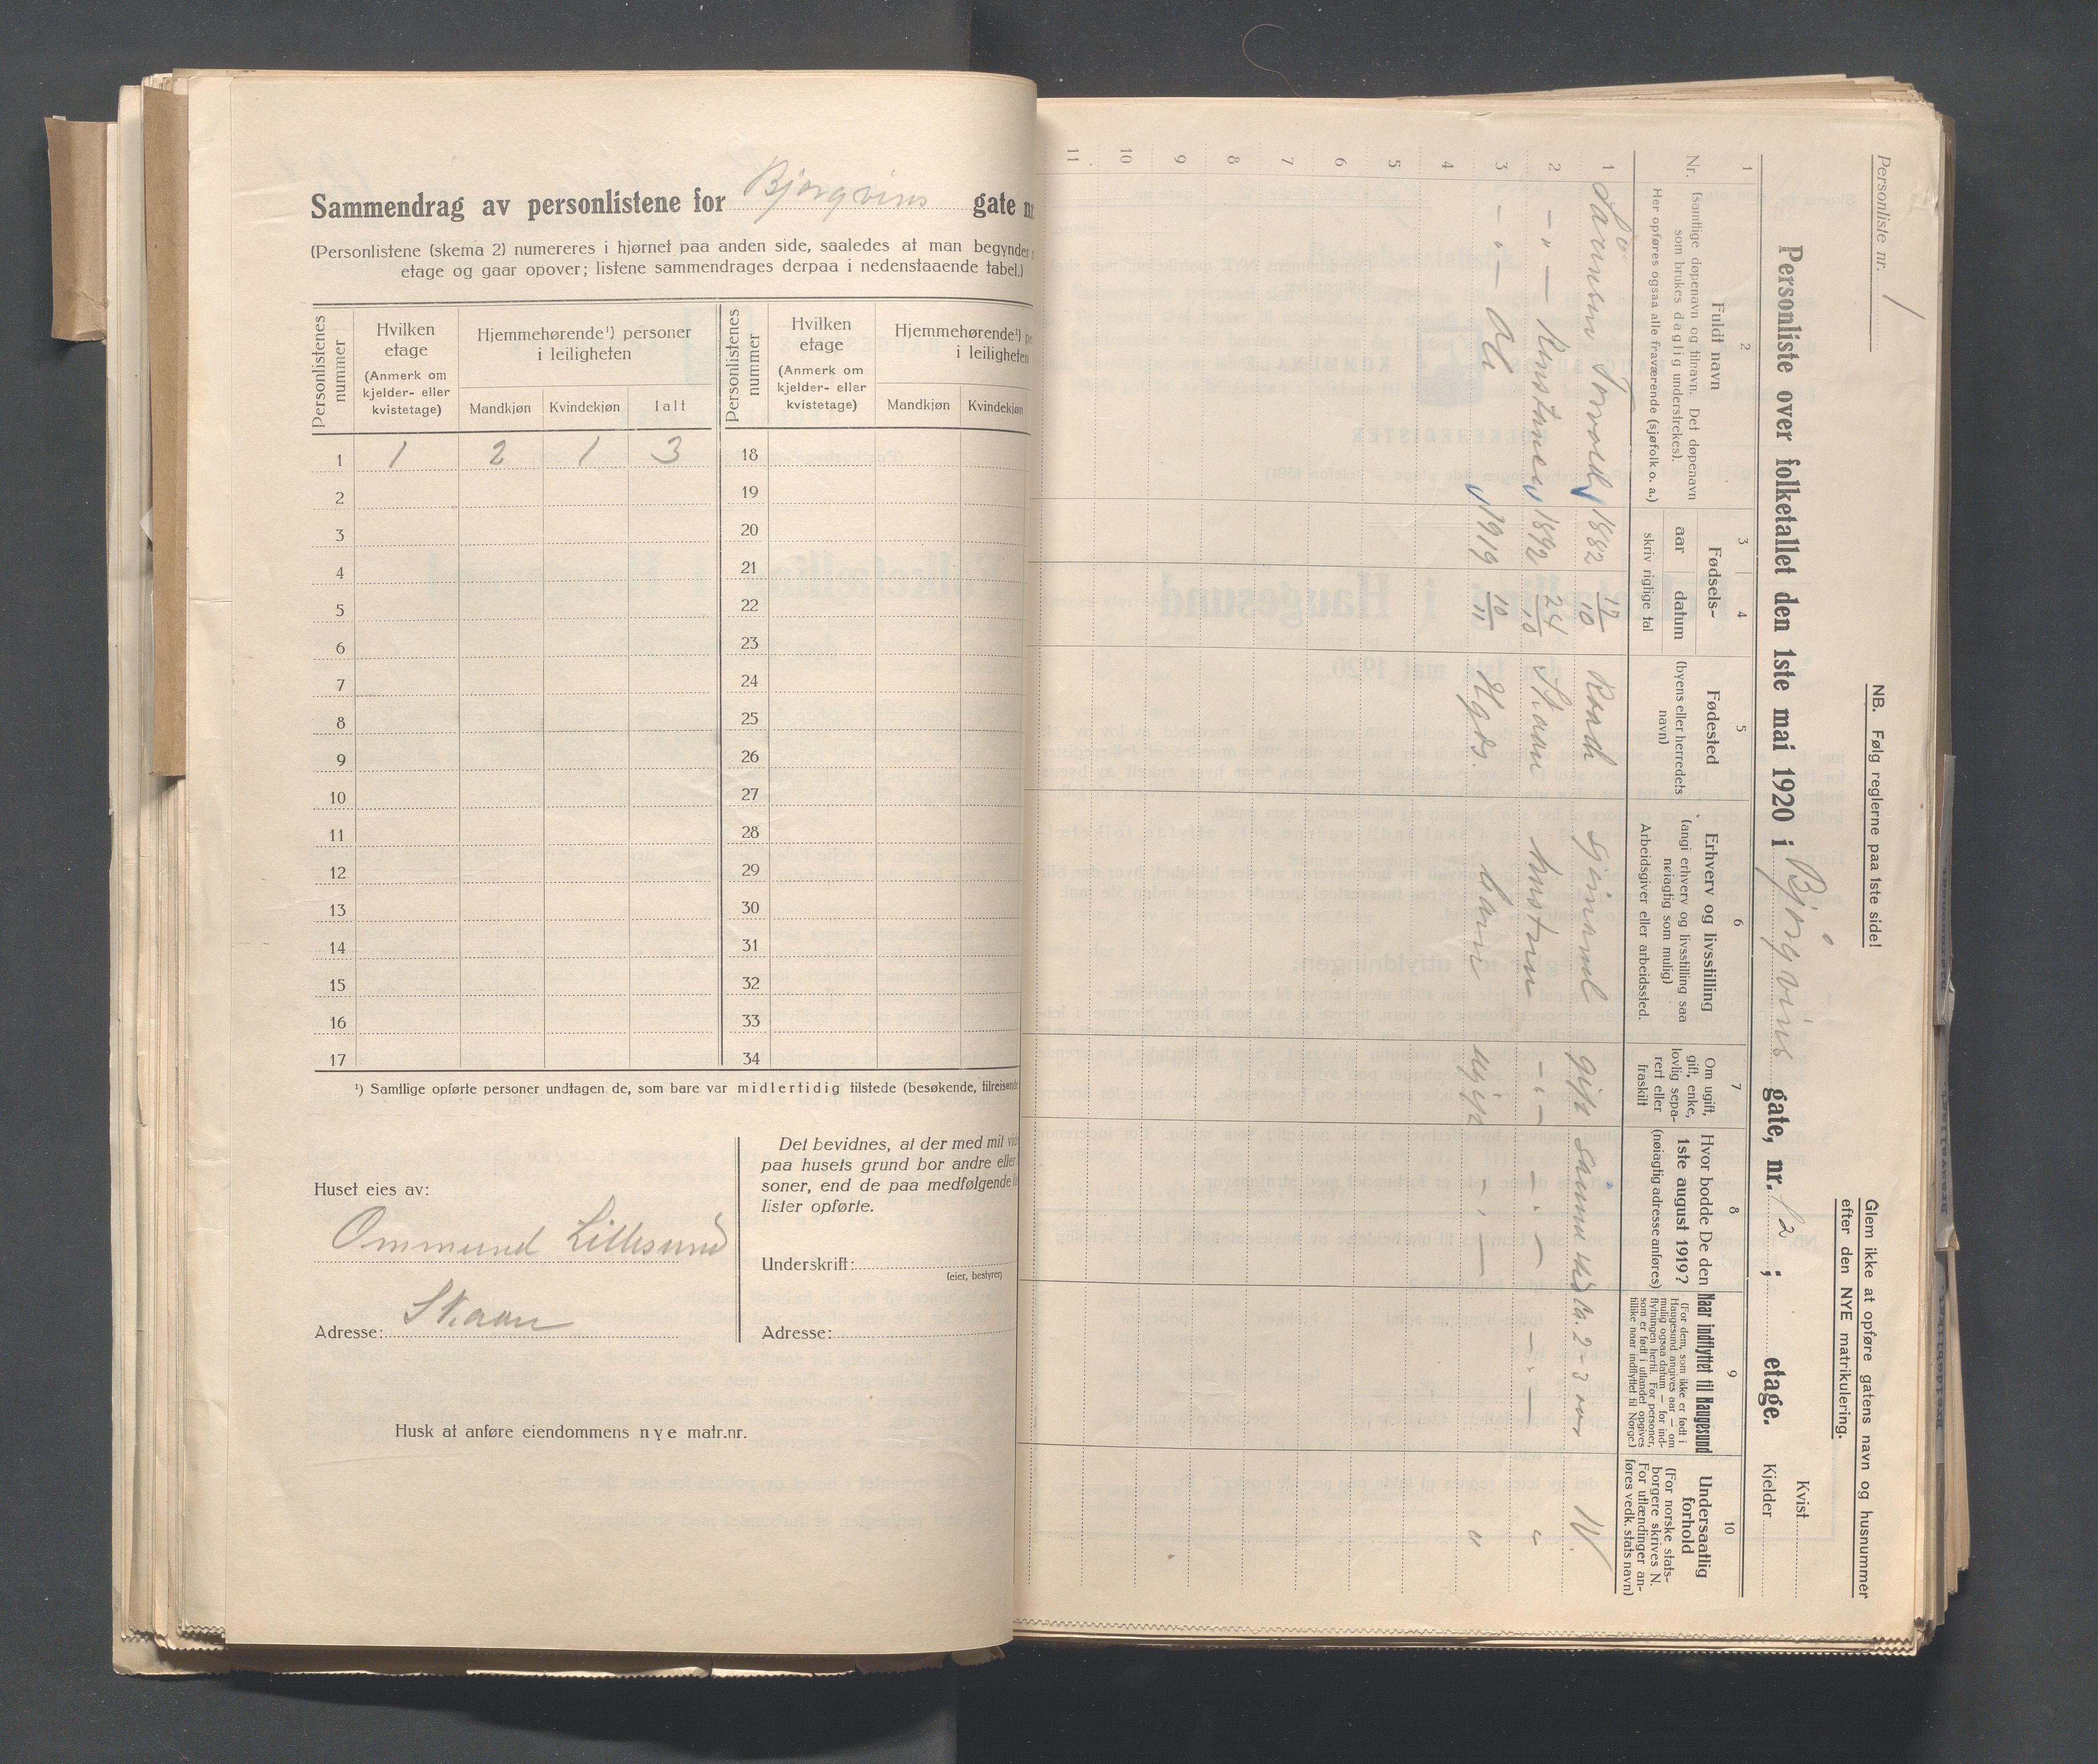 Sammendrag av personlistene for Bjørgvins gate nr
(Personlistene (skema 2) numereres i hjørnet paa anden side, saaledes at man begynder
etage og gaar opover; listene sammendrages derpaa i nedenstaaende tabel.)
Personlistenes nummer
Hvilken etage
(Anmerk om kjelder- eller kvistetage)
Hjemmehørende¹) personer i leiligheten
Mandkjøn Kvindekjøn Ialt
Personlistenes nummer
Hvilken etage
(Anmerk om kjelder- eller kvistetage)
Hjemmehørende¹) pe
i leiligheten
Mandkjøn Kvindekjøn
1 1 2 1 3 18
2 19
3 20
4 21
5 22
6 23
7 24
8 25
9 26
10 27
11 28
12 29
13 30
14 31
15 32
16 33
17 34
¹) Samtlige opførte personer undtagen de, som bare var midlertidig tilstede (besøkende, tilreisende
Huset eies av:
Ommund Lillesund
Adresse: Skaare
Det bevidnes, at der med mit vid
paa husets grund bor andre eller
soner, end de paa medfølgende
lister opførte.
Underskrift:
(eier, bestyrer)
Adresse:
Husk at anføre eiendommens nye matr.nr.
Personliste nr. 1
NB. Følg reglerne paa 1ste side!
Glem ikke at opføre gatens navn og husnummer
efter den NYE matrikulering.
Personliste over folketallet den 1ste mai 1920 i Bjørgvins gate, nr. 12 ; etage.
Kvist
Kjelder
1 2 3 4 5 6 7 8 9 10
Nr.
Fuldt navn
(samtlige døpenavn og tilnavn. Det døpenavn
som brukes daglig understrekes).
Her opføres ogsaa alle fraværende (sjøfolk o. a.)
Fødsels-
aar datum
skriv rigtige tal
Fødested
(byens eller herredets
navn)
Erhverv og livsstilling
(angi erhverv og livsstilling saa
nøiagtig som mulig)
Arbeidsgiver eller arbeidssted.
Om ugift,
gift, enke,
lovlig sepa-
rert eller
fraskilt
Hvor bodde De den
1ste august 1919?
(nøiagtig adresse anføres)
Naar indflyttet til Haugesund
(For dem, som ikke er født i
Haugesund angives aar — om
mulig ogsaa datum — for ind-
flytningen hertil. For personer,
som er født i utlandet opgives
tillike naar indflyttet til Norge.)
Undersaatlig
forhold
(For norske stats-
borgere skrives N.
For utlændinger an-
føres vedk. stats navn)
1 Torvald 1882 17/10 gift samme sted N.
2 - " - 1892 24/10 Skaare hustru - " - - " - - " - "
3 - " - 1919 10/11 Hgds. barn ugift - " - "
4
5
6
7
8
9
10
11